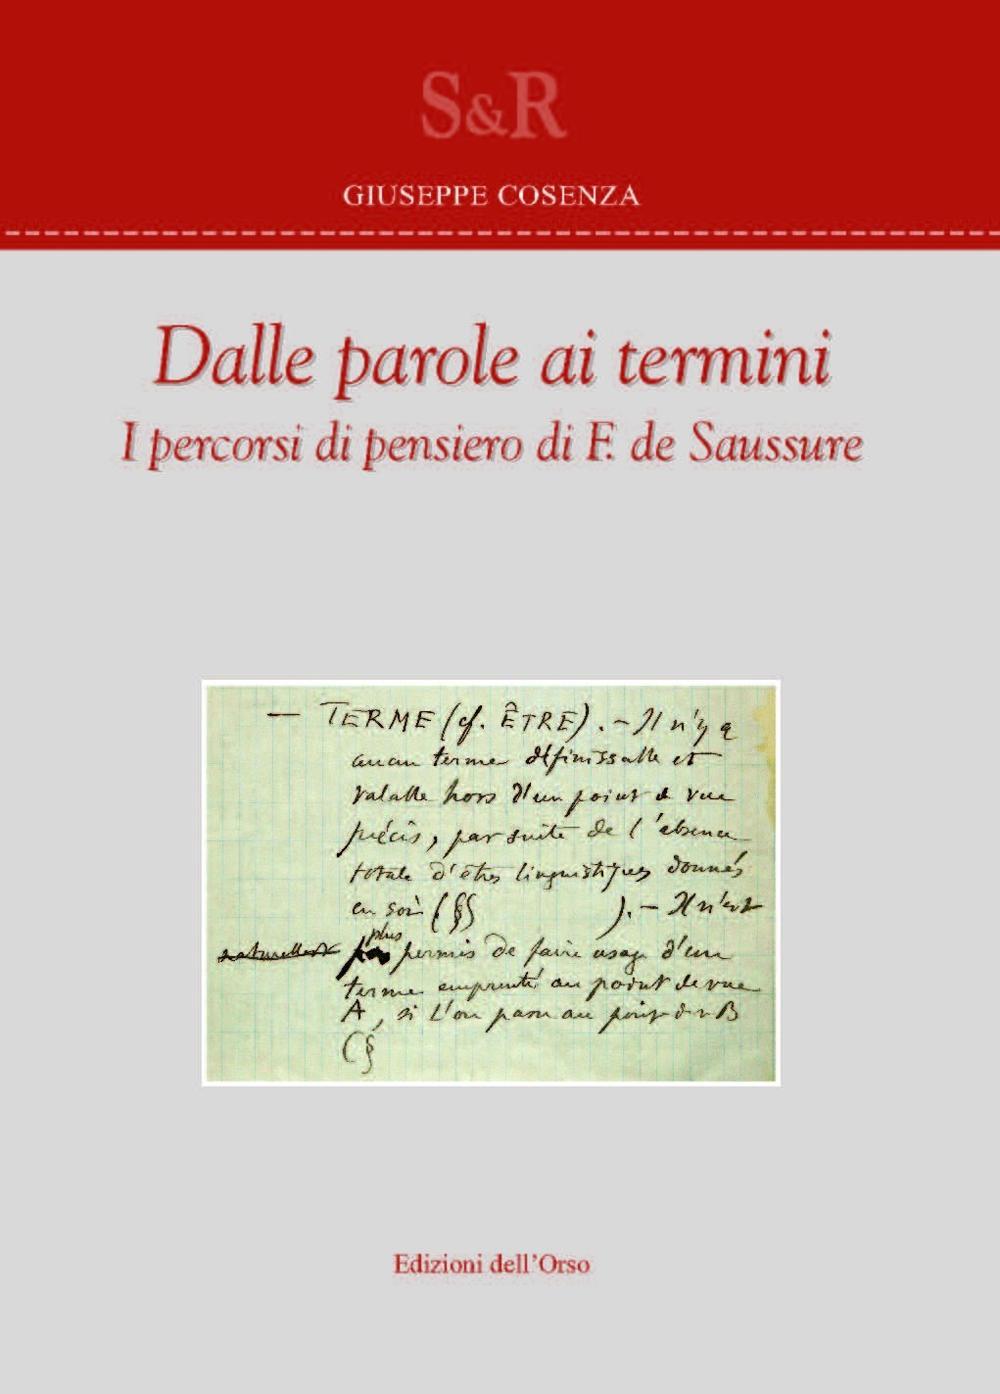 S&R
GIUSEPPE COSENZA
Dalle parole ai termini
I percorsi di pensiero di F. de Saussure
— TERME (cf. ÊTRE). – Il n'y a
aucun terme définissable et
valable hors d'un point de vue
précis, par suite de l'absence
totale d'êtres linguistiques donnés
en soi (§§ ). – Il n'est
plus
naturellement permis de faire usage d'un
terme emprunté au point de vue
A, si l'on passe au point de v B
(§
Edizioni dell'Orso